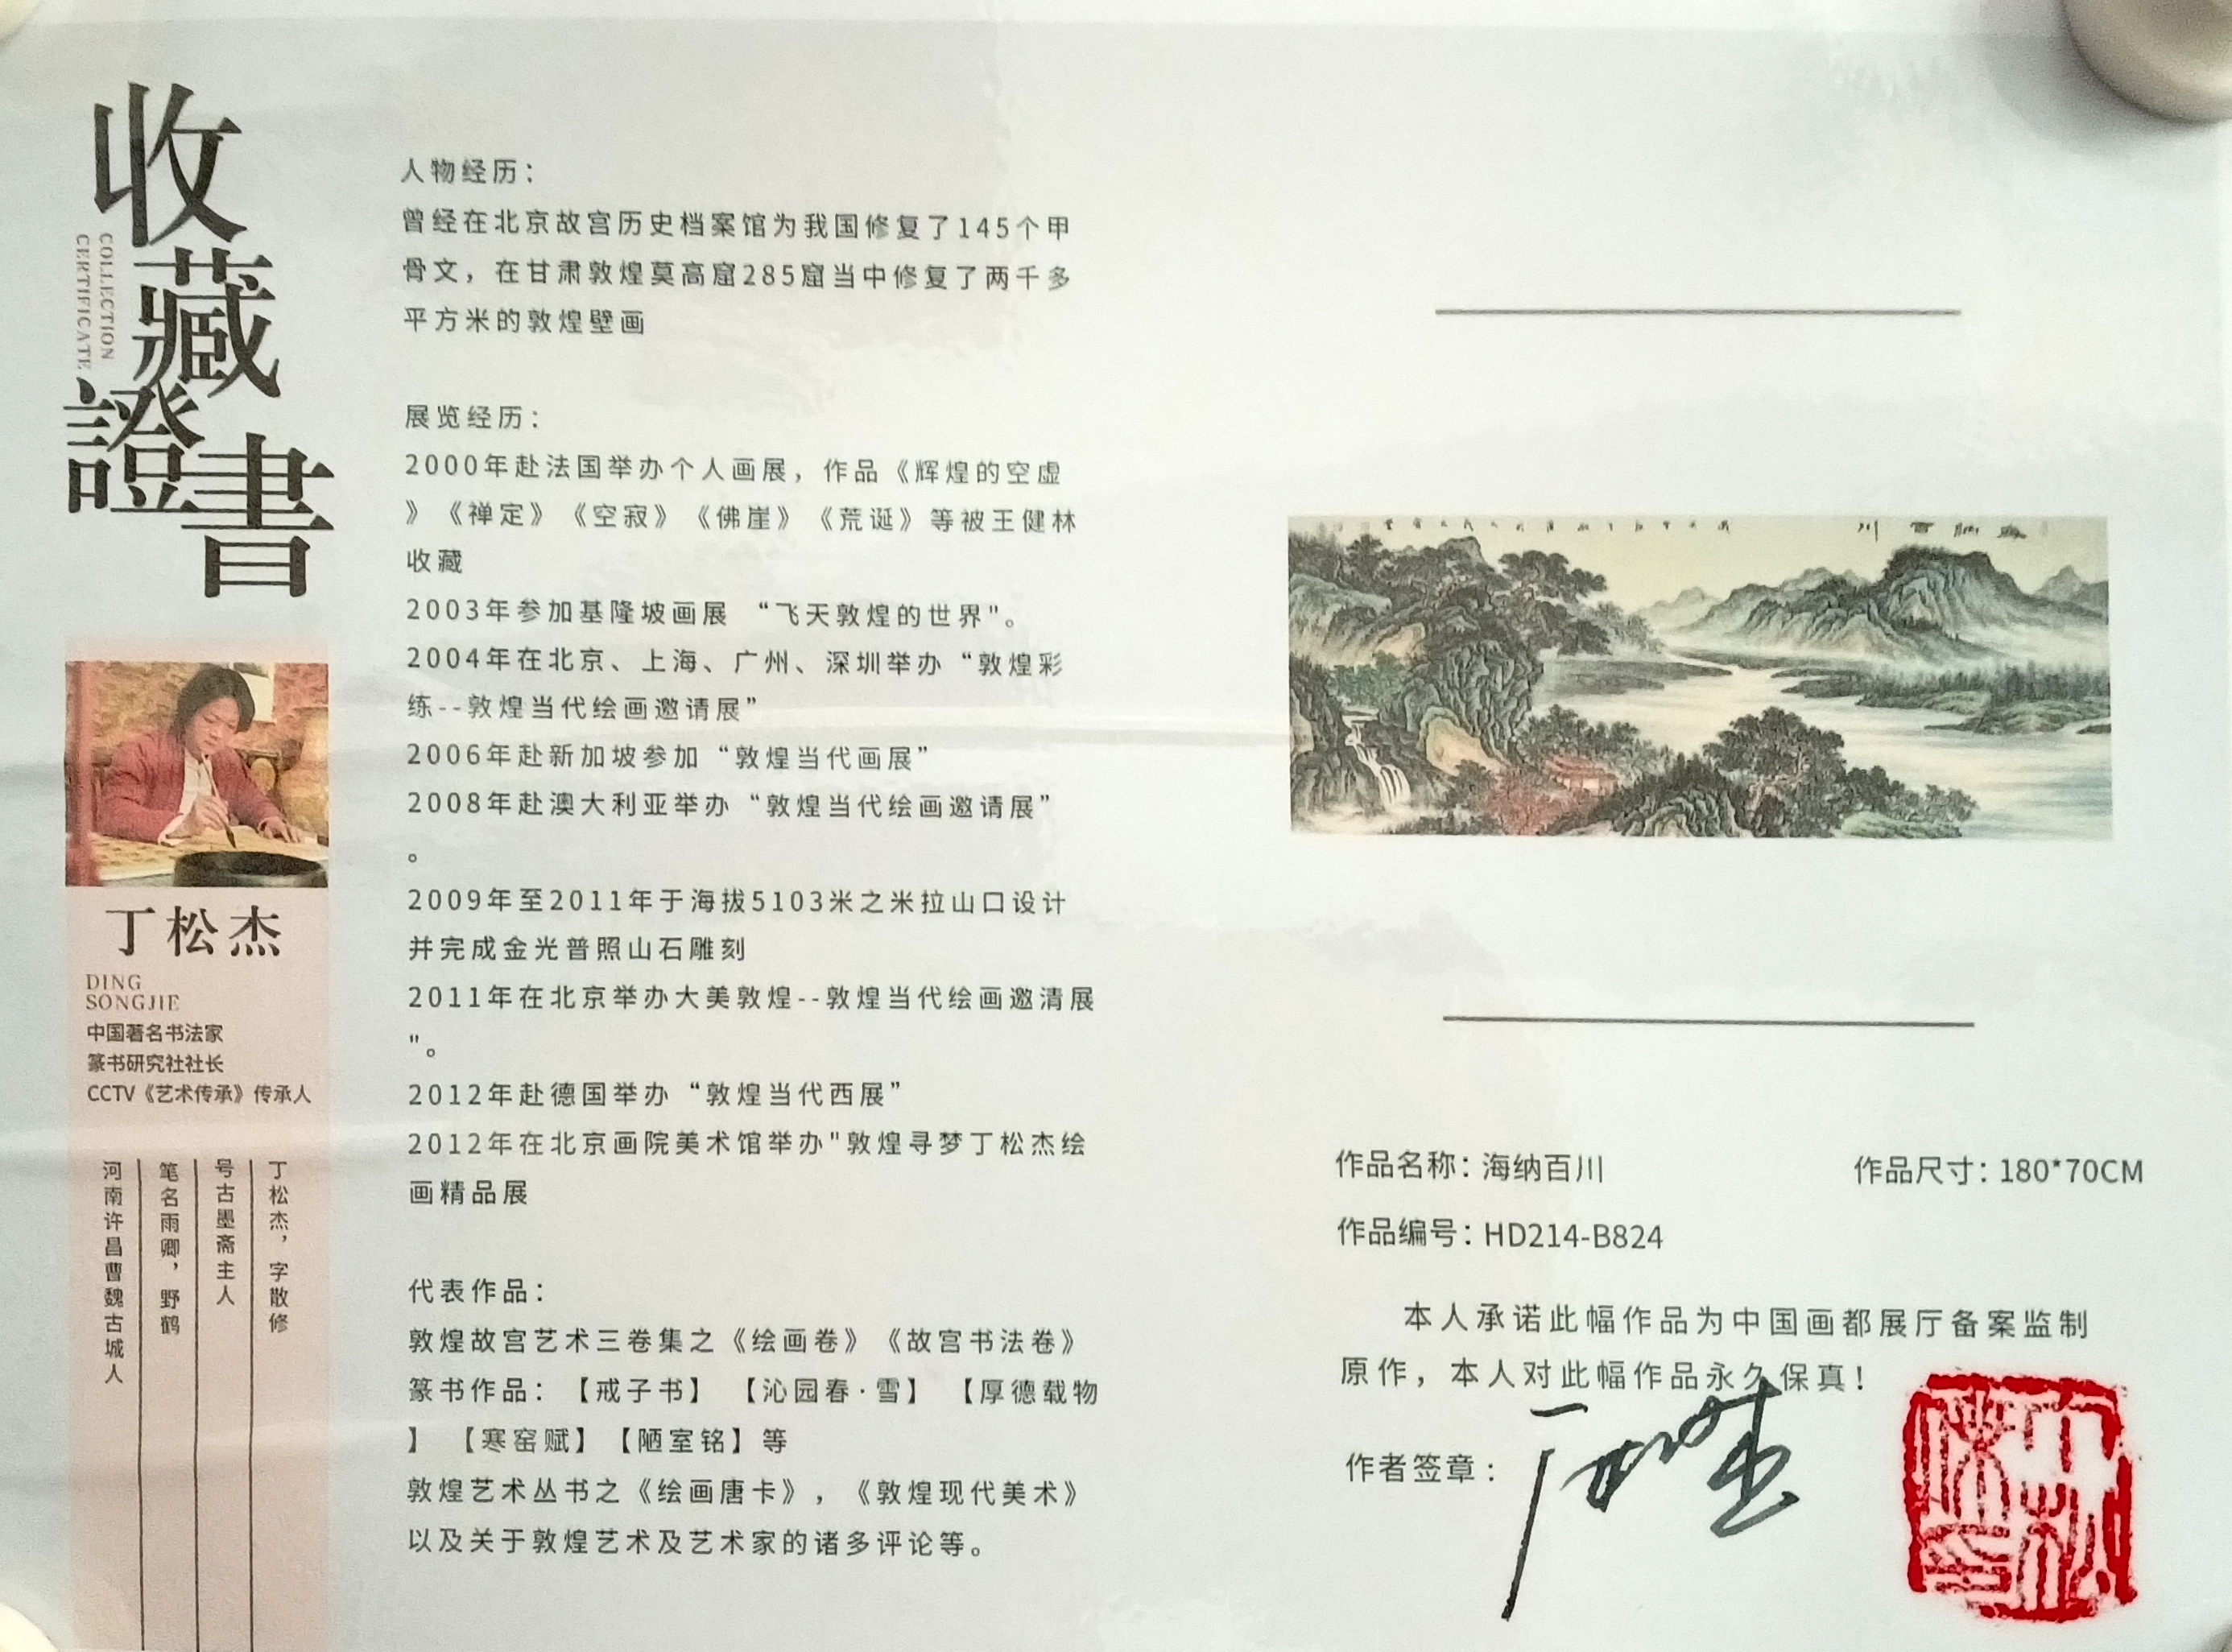 收藏證書
COLLECTION
CERTIFICATE
丁松杰
DING
SONGJIE
中国著名书法家
篆书研究社社长
CCTV《艺术传承》传承人
丁松杰，字散修
号古墨斋主人
笔名雨卿，野鹤
河南许昌曹魏古城人
人物经历：
曾经在北京故宫历史档案馆为我国修复了145个甲
骨文，在甘肃敦煌莫高窟285窟当中修复了两千多
平方米的敦煌壁画
展览经历：
2000年赴法国举办个人画展，作品《辉煌的空虚
》《禅定》《空寂》《佛崖》《荒诞》等被王健林
收藏
2003年参加基隆坡画展 “飞天敦煌的世界"。
2004年在北京、上海、广州、深圳举办“敦煌彩
练--敦煌当代绘画邀请展”
2006年赴新加坡参加“敦煌当代画展”
2008年赴澳大利亚举办“敦煌当代绘画邀请展”
。
2009年至2011年于海拔5103米之米拉山口设计
并完成金光普照山石雕刻
2011年在北京举办大美敦煌--敦煌当代绘画邀清展
"。
2012年赴德国举办“敦煌当代西展”
2012年在北京画院美术馆举办"敦煌寻梦丁松杰绘
画精品展
代表作品：
敦煌故宫艺术三卷集之《绘画卷》《故宫书法卷》
篆书作品：【戒子书】 【沁园春·雪】 【厚德载物
】 【寒窑赋】【陋室铭】等
敦煌艺术丛书之《绘画唐卡》，《敦煌现代美术》
以及关于敦煌艺术及艺术家的诸多评论等。
作品名称：海纳百川
作品尺寸：180*70CM
作品编号：HD214-B824
本人承诺此幅作品为中国画都展厅备案监制
原作，本人对此幅作品永久保真！
作者签章：